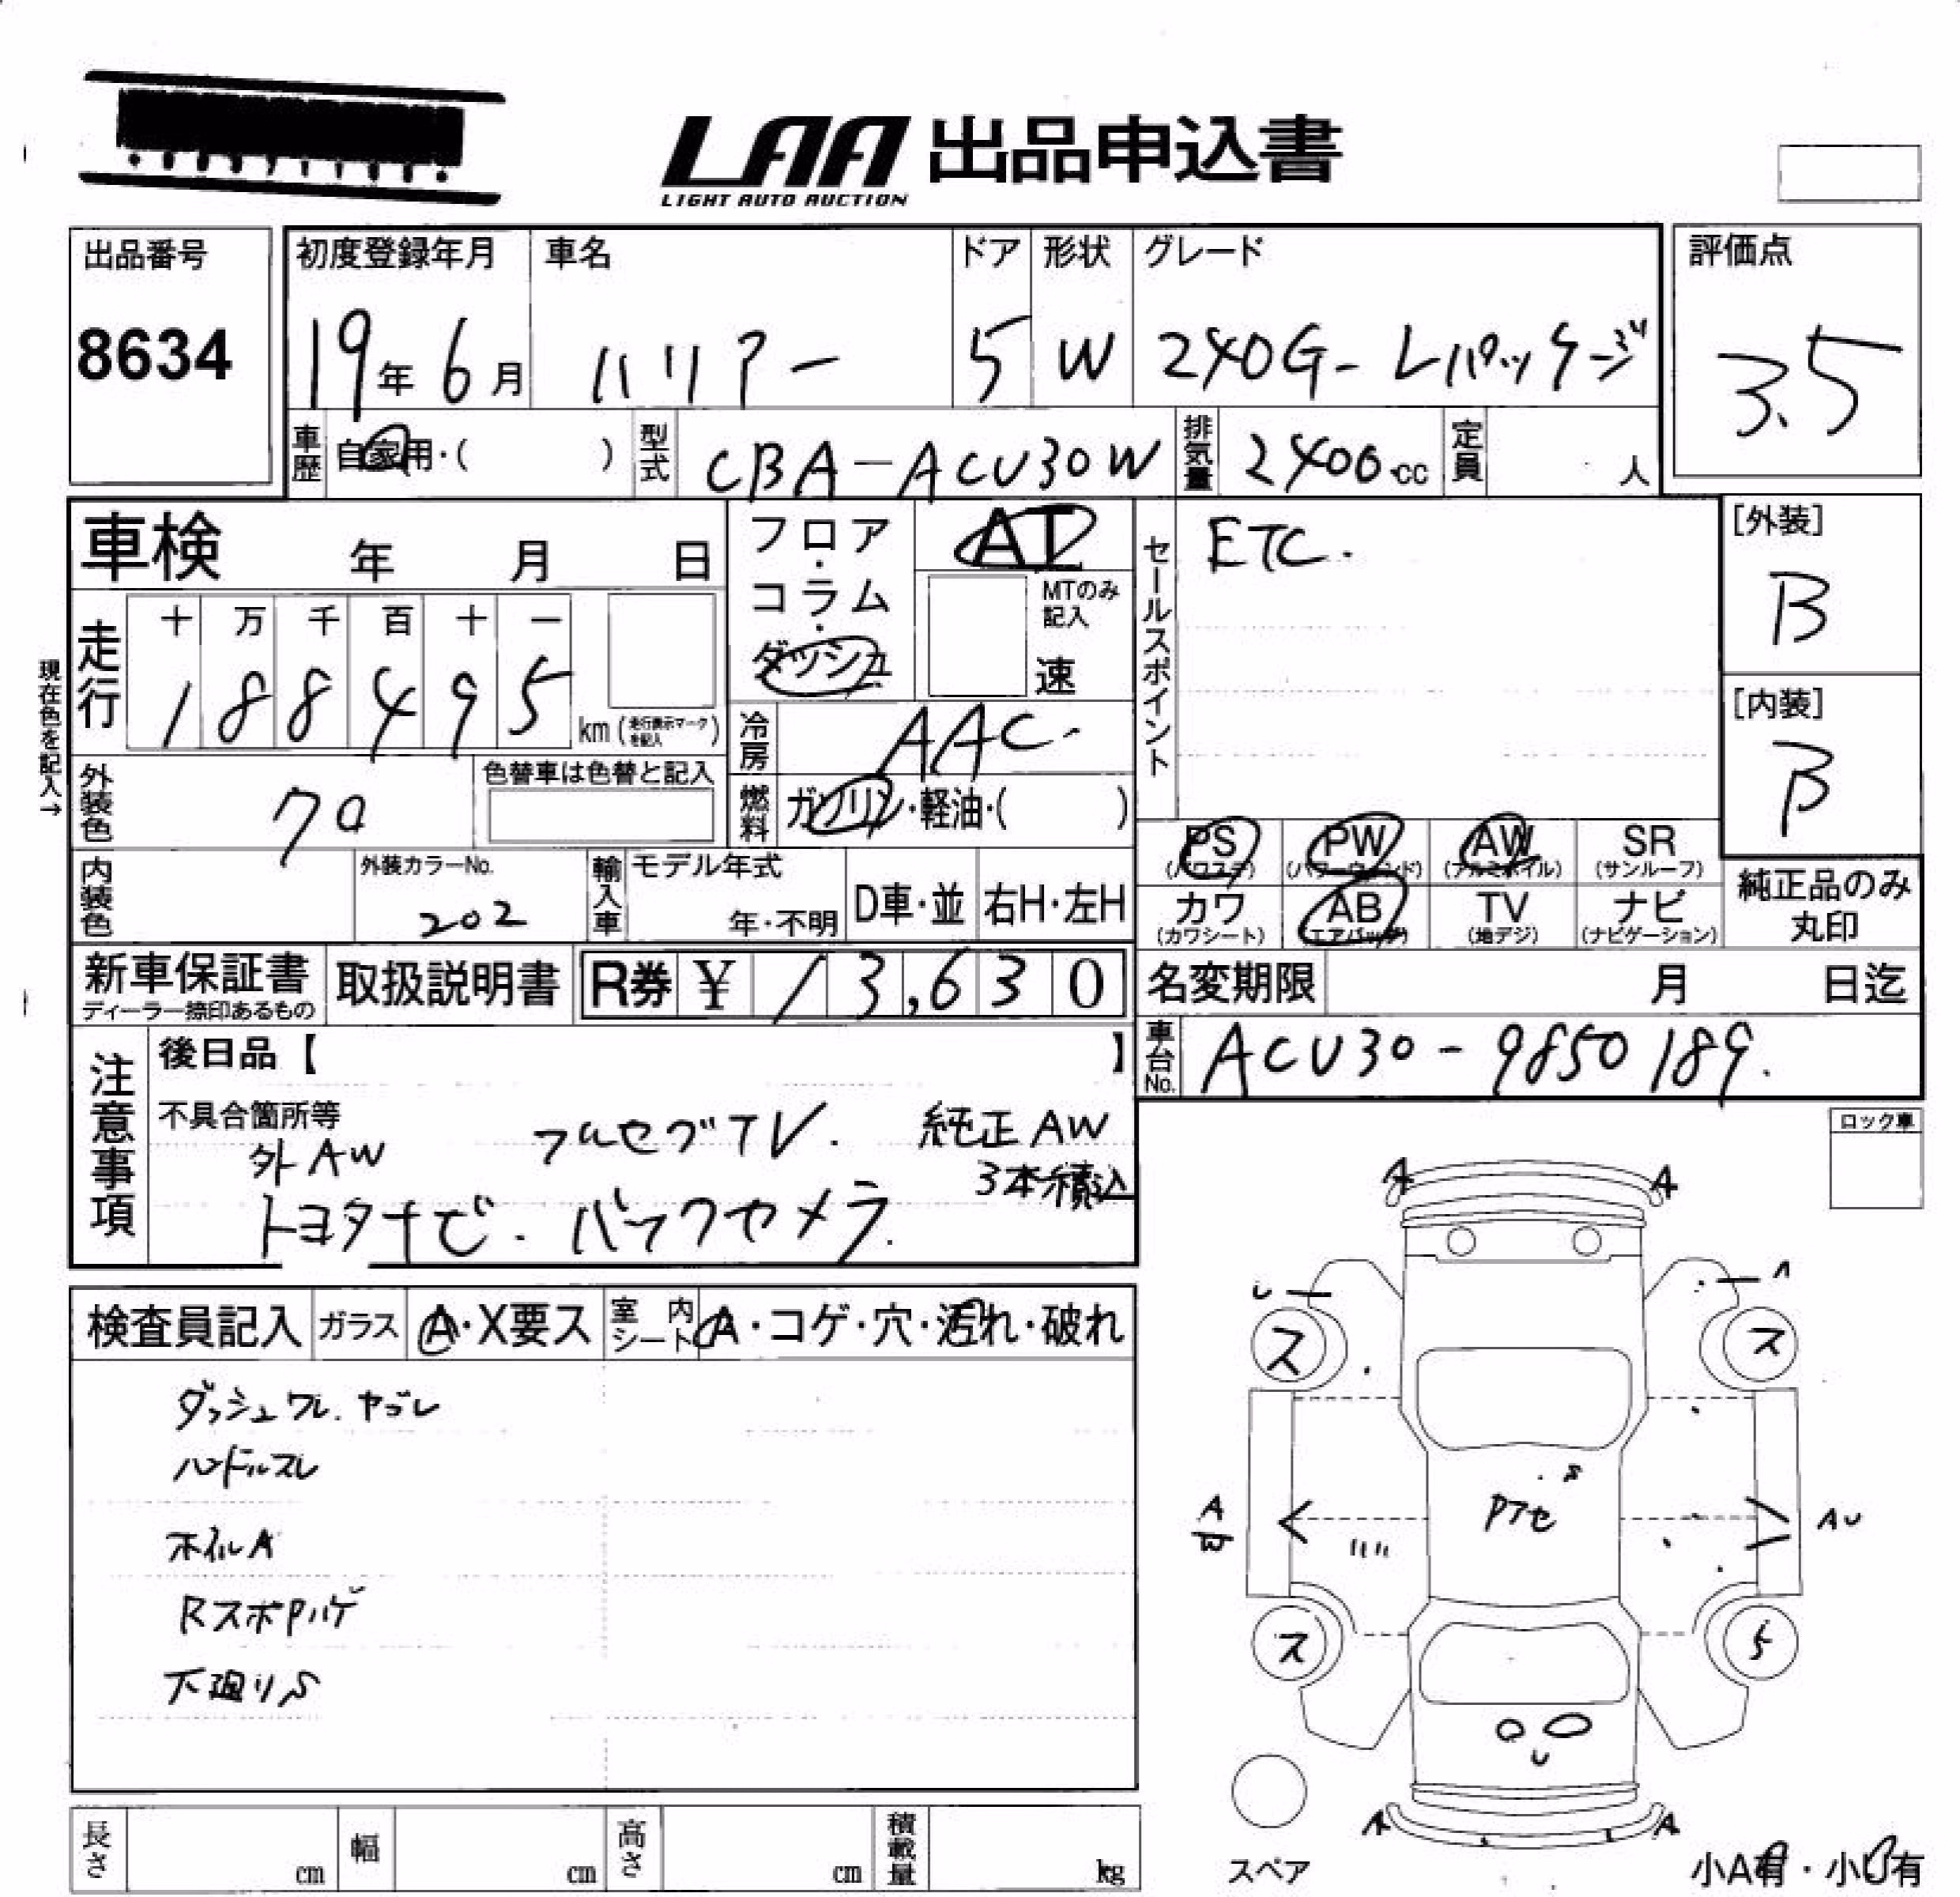 LAA 出品申込書
LIGHT AUTO AUCTION
出品番号 初度登録年月 車名 ドア 形状 グレード 評価点
8634 19年 6月 ハリアー 5 W 240G-Lパッケージ 3.5
車歴 自家用・( ) 型式 CBA-ACU30W 排気量 2400cc 定員 人
車検 年 月 日 フロア・コラム・ダッシュ AT
MTのみ記入 速
セールスポイント ETC.
[外装] B
走行 十 万 千 百 十 一
188495 km (走行表示マークを記入)
[内装] B
現在色を記入→
冷房 AAC
外装色 クロ 色替車は色替と記入
燃料 ガソリン・軽油・( )
PS (パワステ) PW (パワーウィンド) AW (アルミホイル) SR (サンルーフ)
カワ (カワシート) AB (エアバッグ) TV (地デジ) ナビ (ナビゲーション)
純正品のみ丸印
内装色 外装カラーNo. 202 輸入車 モデル年式 年・不明 D車・並 右H・左H
新車保証書 ディーラー捺印あるもの 取扱説明書 R券 ¥ 13,630
名変期限 月 日迄
車台No. ACU30-9850189.
注意事項 後日品【 】
不具合箇所等
外AW フルセグTV. 純正AW
3本積込
トヨタナビ. バックカメラ.
ロック車
検査員記入 ガラス A・X要ス 室内シート A・コゲ・穴・汚れ・破れ
ダッシュワレ. ヤブレ
ハンドルスレ
ホイルA
RスポPハゲ
下廻りS
A A
U A
ス ス
S
Pアセ
A
B
AU
ス 5
U
A A
スペア
小A有・小U有
長さ cm 幅 cm 高さ cm 積載量 kg